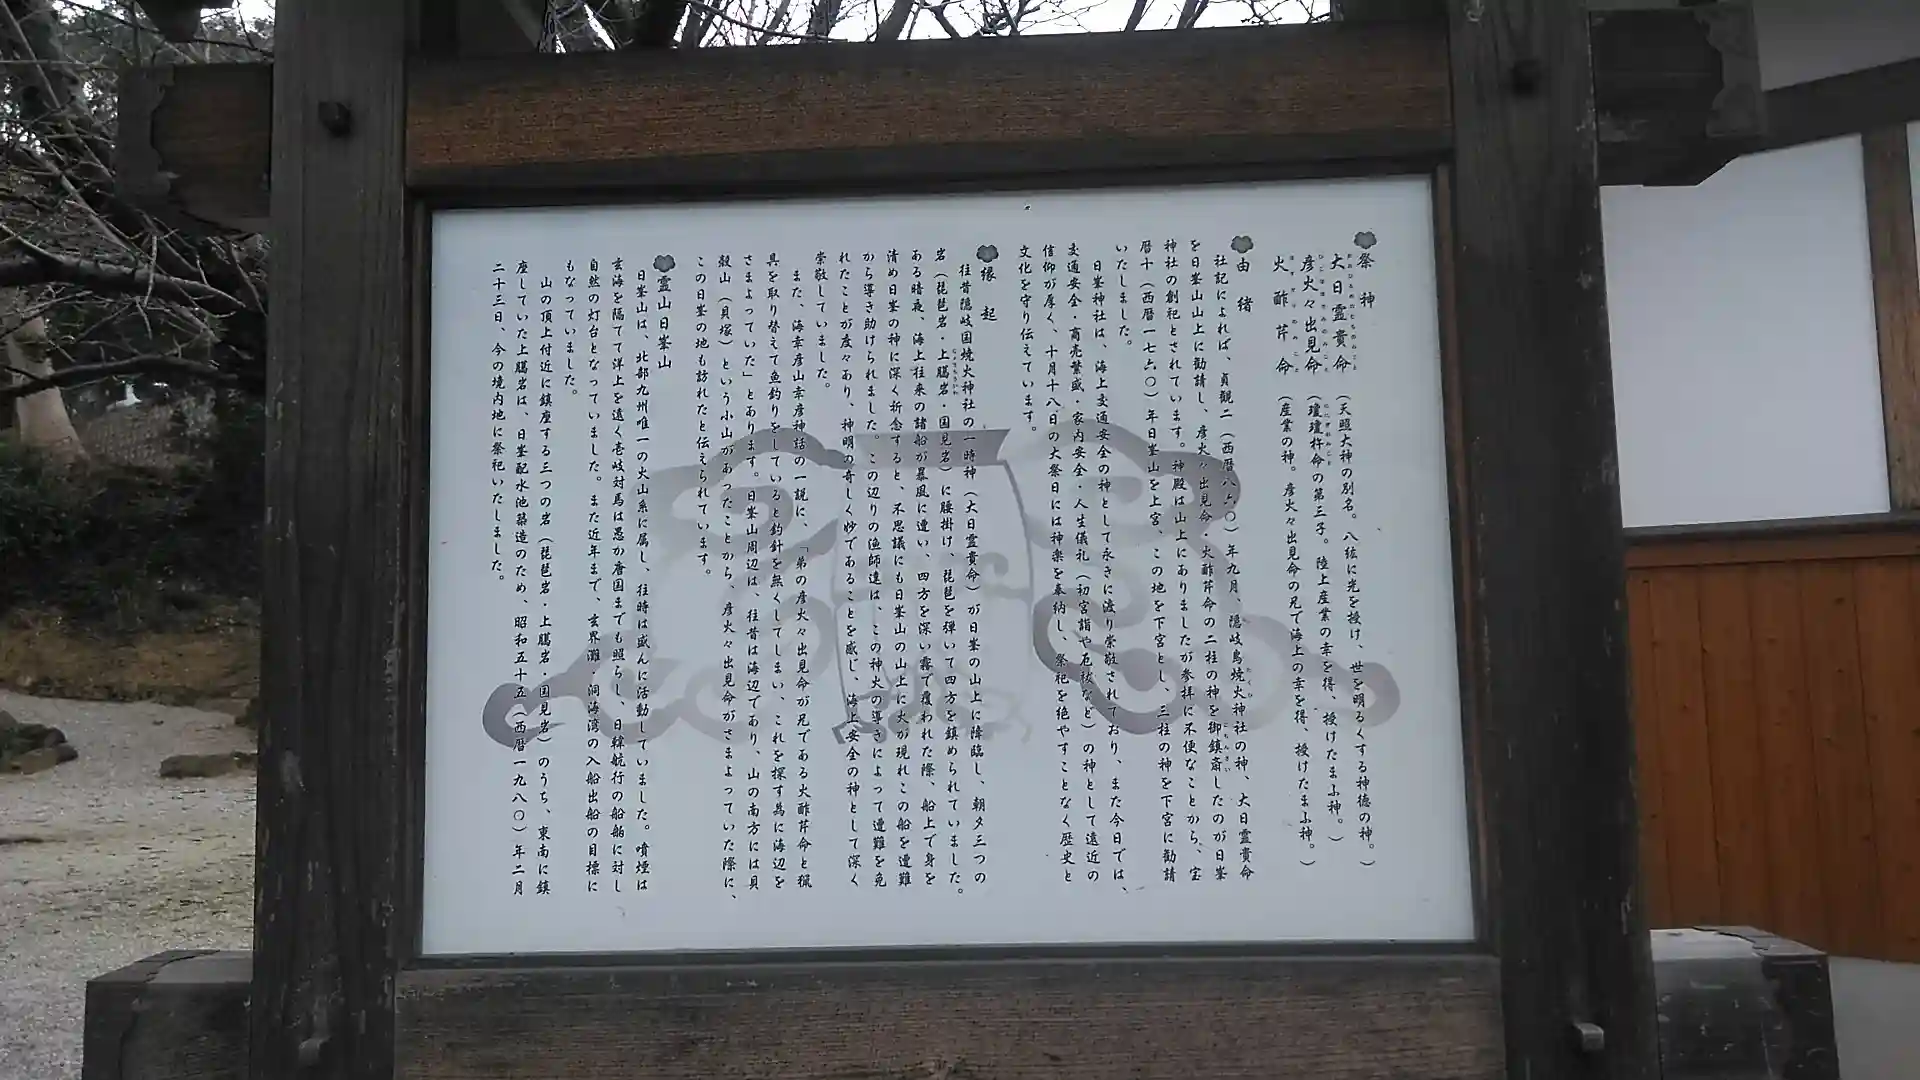 祭神
大日霊貴命（天照大神の別名。八紘に光を授け、世を明るくする神徳の神。）
彦火々出見命（瓊瓊杵命の第三子。陸上産業の幸を得、授けたまふ神。）
火酢芹命（産業の神。彦火々出見命の兄で海上の幸を得、授けたまふ神。）
由緒
社記によれば、貞観二（西暦八六〇）年九月、隠岐島焼火神社の神、大日霊貴命
を日峯山山上に勧請し、彦火々出見命・火酢芹命の二柱の神を御鎮斎したのが日峯
神社の創祀とされています。神殿は山上にありましたが参拝に不便なことから、宝
暦十（西暦一七六〇）年日峯山を上宮、この地を下宮とし、三柱の神を下宮に勧請
いたしました。
日峯神社は、海上交通安全の神として永きに渡り崇敬されており、また今日では、
交通安全・商売繁盛・家内安全・人生儀礼（初宮詣や厄祓など）の神として遠近の
信仰が厚く、十月十八日の大祭日には神楽を奉納し、祭祀を絶やすことなく歴史と
文化を守り伝えています。
縁起
往昔隠岐国焼火神社の一時神（大日霊貴命）が日峯の山上に降臨し、朝夕三つの
岩（琵琶岩・上臈岩・国見岩）に腰掛け、琵琶を弾いて四方を鎮められていました。
ある暗夜、海上往来の諸船が暴風に遭い、四方を深い霧で覆われた際、船上で身を
清め日峯の神に深く祈念すると、不思議にも日峯山の山上に火が現れこの船を遭難
から導き助けられました。この辺りの漁師達は、この神火の導きによって遭難を免
れたことが度々あり、神明の奇しく妙であることを感じ、海上安全の神として深く
崇敬していました。
また、海幸彦山幸彦神話の一説に、「弟の彦火々出見命が兄である火酢芹命と猟
具を取り替えて魚釣りをしていると釣針を無くしてしまい、これを探す為に海辺を
さまよっていた」とあります。日峯山周辺は、往昔は海辺であり、山の南方には貝
殻山（貝塚）という小山があったことから、彦火々出見命がさまよっていた際に、
この日峯の地も訪れたと伝えられています。
霊山日峯山
日峯山は、北部九州唯一の火山系に属し、往時は盛んに活動していました。噴煙は
玄海を隔てて洋上を遠く壱岐対馬は愚か唐国までも照らし、日韓航行の船舶に対し
自然の灯台となっていました。また近年まで、玄界灘・洞海湾の入船出船の目標に
もなっていました。
山の頂上付近に鎮座する三つの岩（琵琶岩・上臈岩・国見岩）のうち、東南に鎮
座していた上臈岩は、日峯配水池築造のため、昭和五十五（西暦一九八〇）年二月
二十三日、今の境内地に祭祀いたしました。